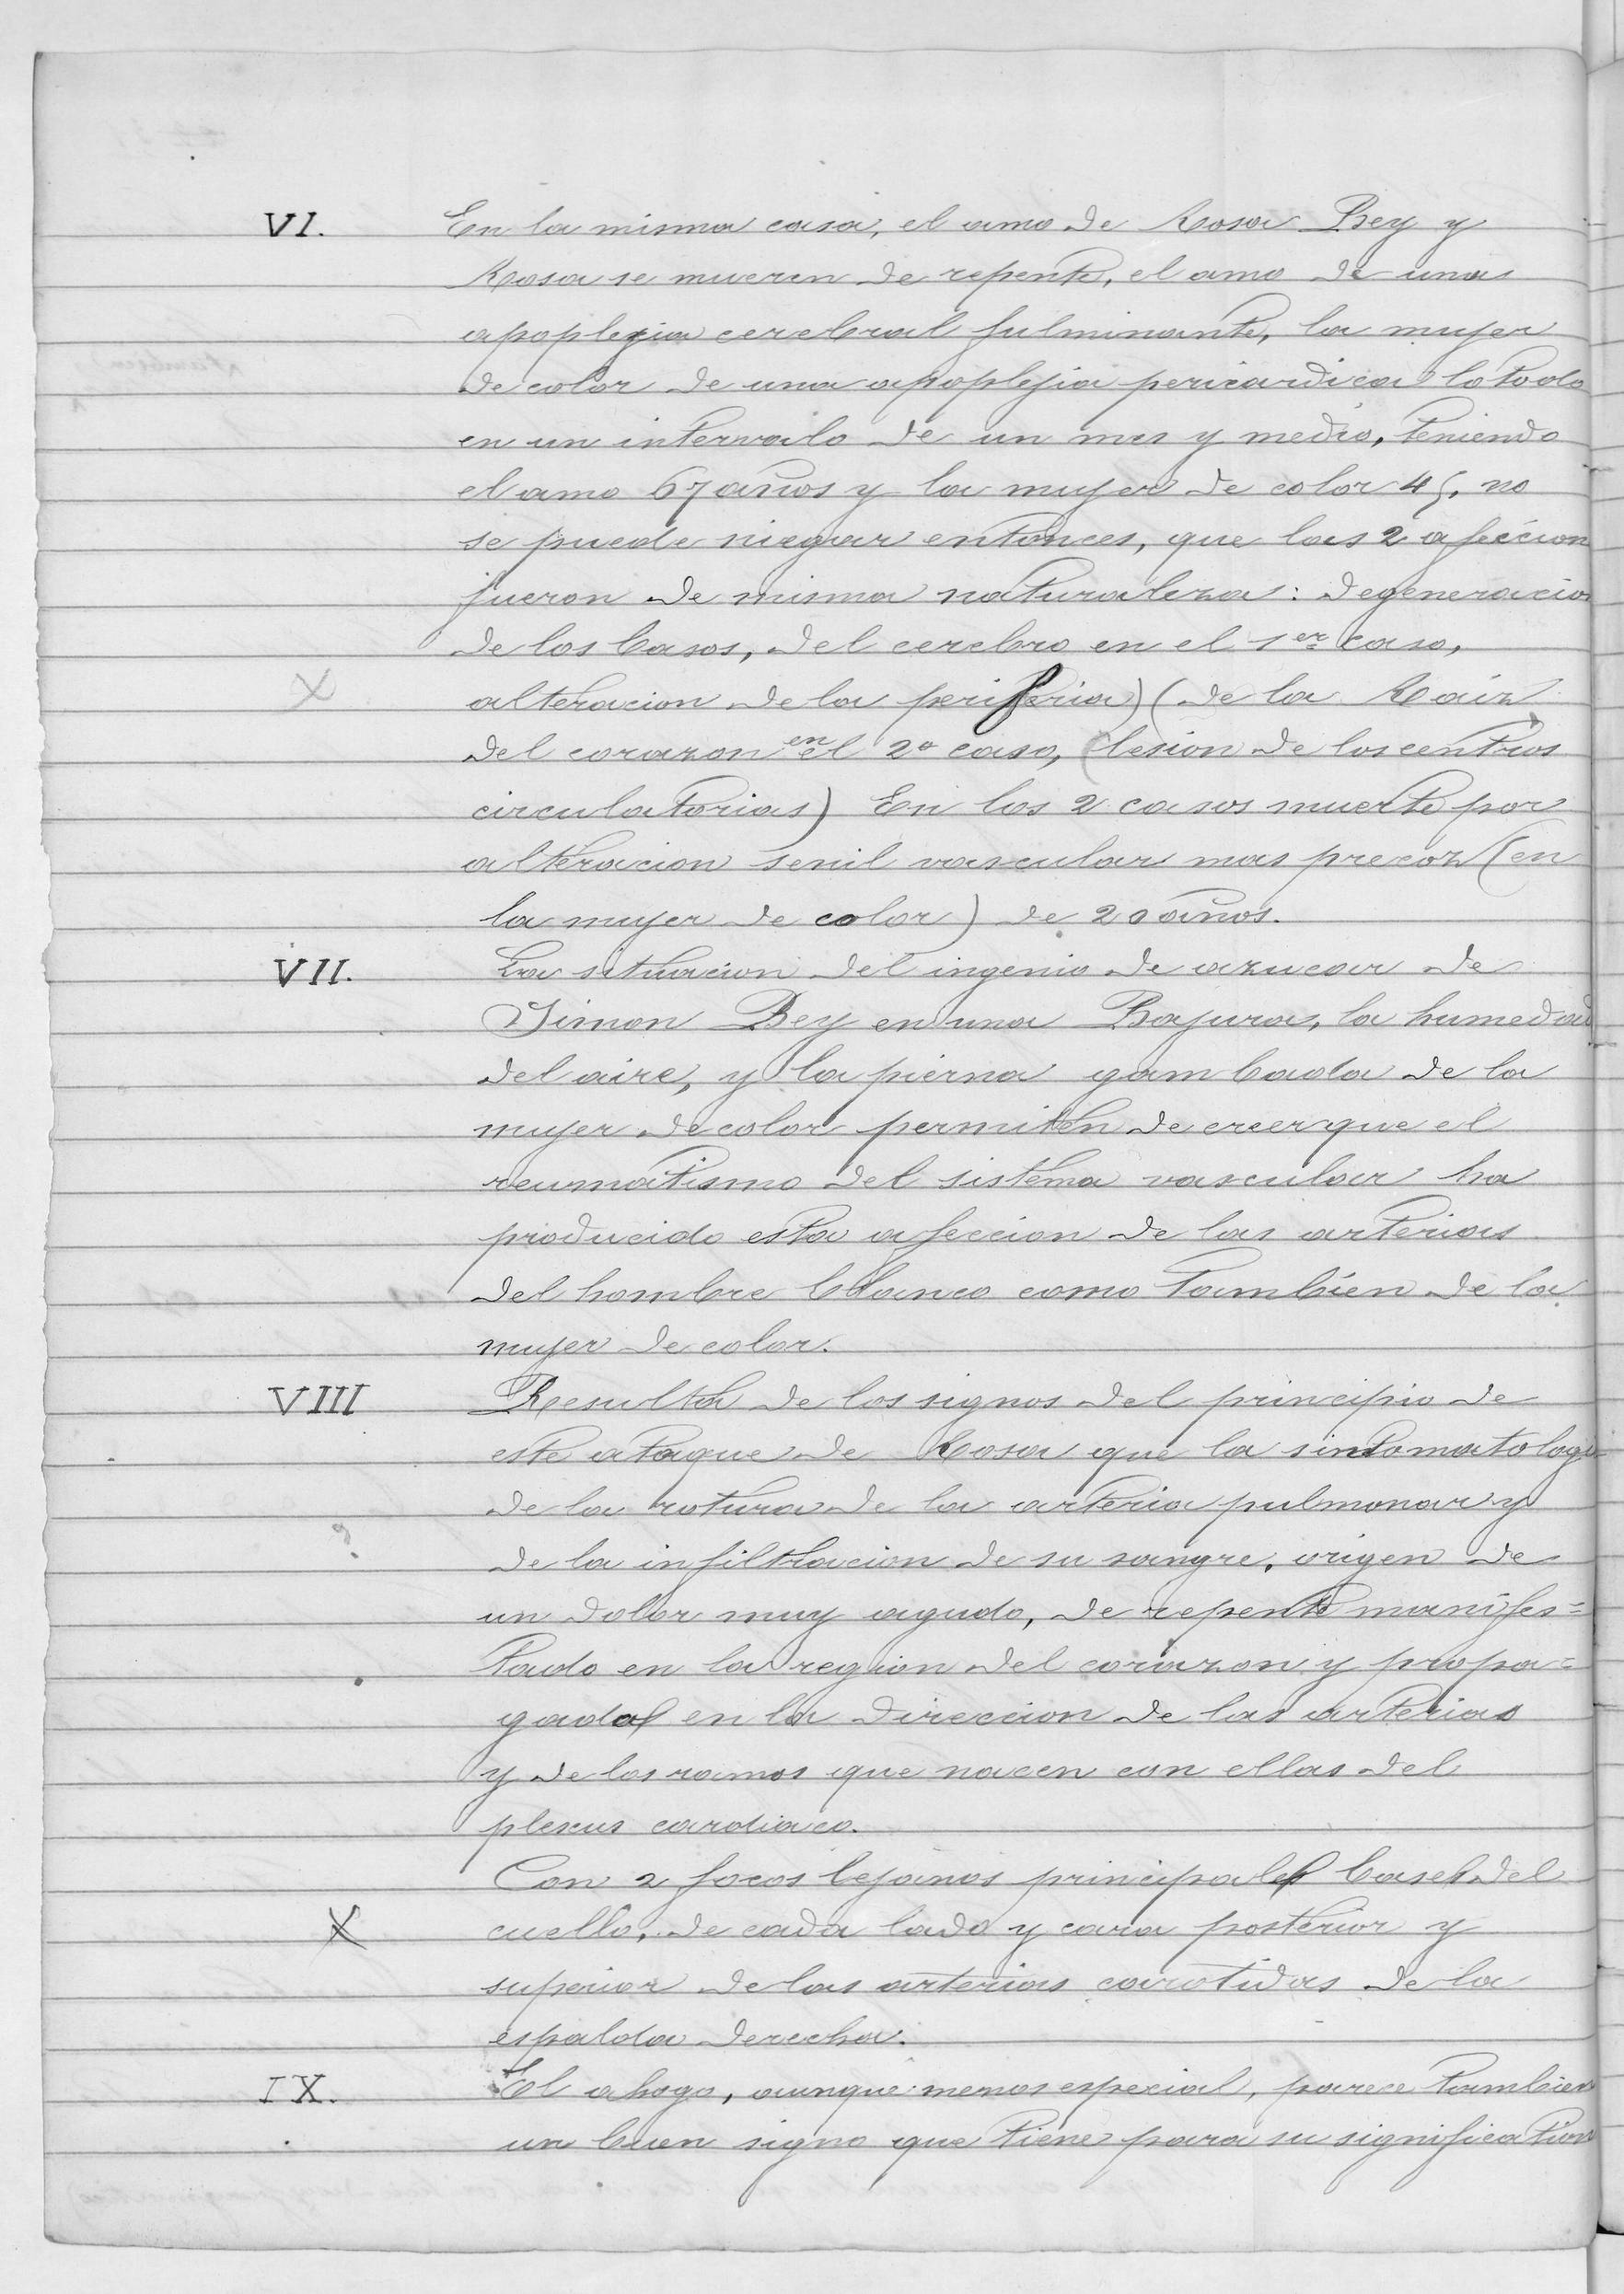 VI. En la misma casa, el amo de Rosa Bey y
Rosa se mueren de repente, el amo de una
apoplegia cerebral fulminante, la mujer
de color de una apoplejia pericardica lo todo
en un intervalo de un mes y medio, teniendo
el amo 67 años y la mujer de color 45, no
se puede niegar entonces, que las 2 afeccion
fueron de misma naturaleza: degeneracion
de los basos, del cerebro en el 1er caso,
X alteracion de la periferia) (de la Raiz
del corazon en el 2o caso, (lesion de los centros
circulatorias) En los 2 casos muerte por
alteracion senil vascular mas precoz (en
la mujer de color) de 20 años.
VII. La situacion del ingenio de azucar de
Simon Bey en una Bajura, la humedad
del aire, y la pierna gambada de la
mujer de color permiten de creer que el
reumatismo del sistema vascular ha
producido esta afeccion de las arterias
del hombre blanco como tambien de la
mujer de color.
VIII Resulta de los signos del principio de
este ataque de Rosa que la sintomatologi
de la rotura de la arteria pulmonar y
de la infiltracion de su sangre, origen de
un dolor muy agudo, de repente manifes=
tado en la region del corazon y propa=
gado en la direccion de las arterias
y de los ramos que nacen con ellas del
plexus cardiaco.
Con 2 focos lejanos principales bases del
X cuello, de cada lado y cara posterior y
superior de las arterias carotidas de la
espalda derecha.
IX. El ahogo, aunque menos especial, parece tambien
un buen signo que tiene para su signification